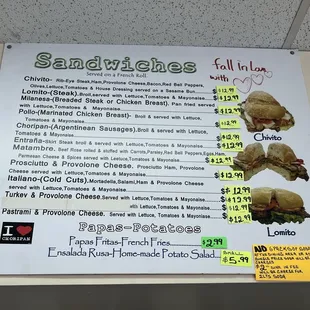 Sandwiches
Served on a French Roll
fall in Love
with
Chivito- Rib-Eye Steak,Ham,Provolone Cheese,Bacon,Red Bell Peppers,
Olives,Lettuce,Tomatoes & House Dressing served on a Sesame Bun $12.99
Lomito-(Steak).Broil,served with Lettuce,Tomatoes & Mayonnaise. $12.99
Milanesa-(Breaded Steak or Chicken Breast). Pan fried served
with Lettuce,Tomatoes & Mayonnaise. $12.99
Pollo-(Marinated Chicken Breast)- Broil & served with Lettuce,
Tomatoes & Mayonnaise. $12.99
Choripan-(Argentinean Sausages).Broil & served with Lettuce,
Tomatoes & Mayonnaise. $12.99
Entraña-Skirt Steak broil & served with Lettuce,Tomatoes & Mayonnaise. $12.99
Matambre. Beef Rose rolled & stuffed with Carrots,Parsley,Red Bell Peppers,Eggs,Ham,
Parmesan Cheese & Spices served with Lettuce,Tomatoes & Mayonnaise. $12.99
Prosciutto & Provolone Cheese. Prosciutto Ham, Provolone
Cheese served with Lettuce,Tomatoes & Mayonnaise. $12.99
Italiano-(Cold Cuts).Mortadella,Salami,Ham & Provolone Cheese,
served with Lettuce,Tomatoes & Mayonnaise. $12.99
Turkey & Provolone Cheese. Served with Lettuce,Tomatoes & Mayonnaise. $12.99
Pastrami & Provolone Cheese. Served with Lettuce,Tomatoes & Mayonnaise. $12.99
Chivito
Lomito
I
CHORIPAN
Papas-Potatoes
Papas Fritas-French Fries $2.99
Ensalada Rusa-Home-made Potato Salad SMALL $5.99
NO